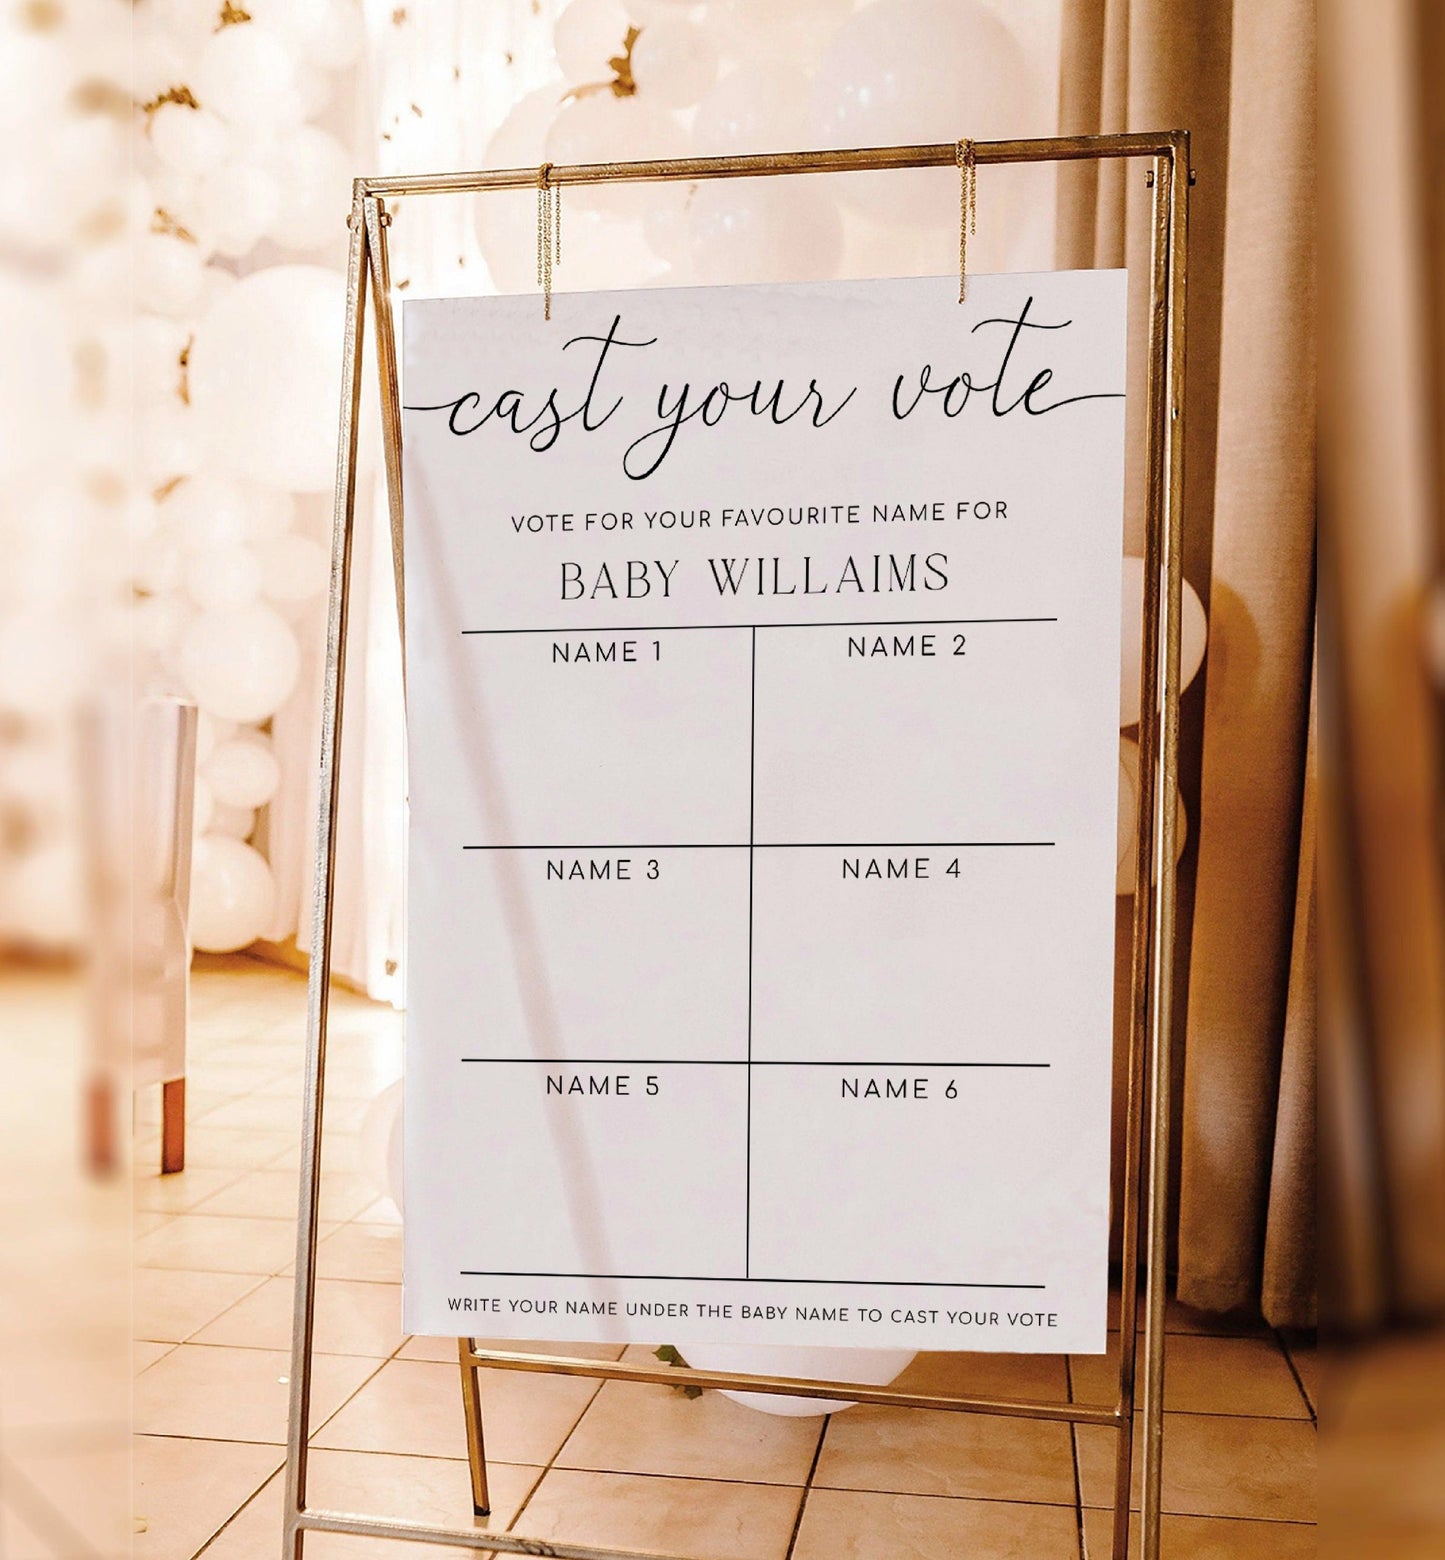 cast your vote
VOTE FOR YOUR FAVOURITE NAME FOR
BABY WILLAIMS
NAME 1
NAME 2
NAME 3
NAME 4
NAME 5
NAME 6
WRITE YOUR NAME UNDER THE BABY NAME TO CAST YOUR VOTE